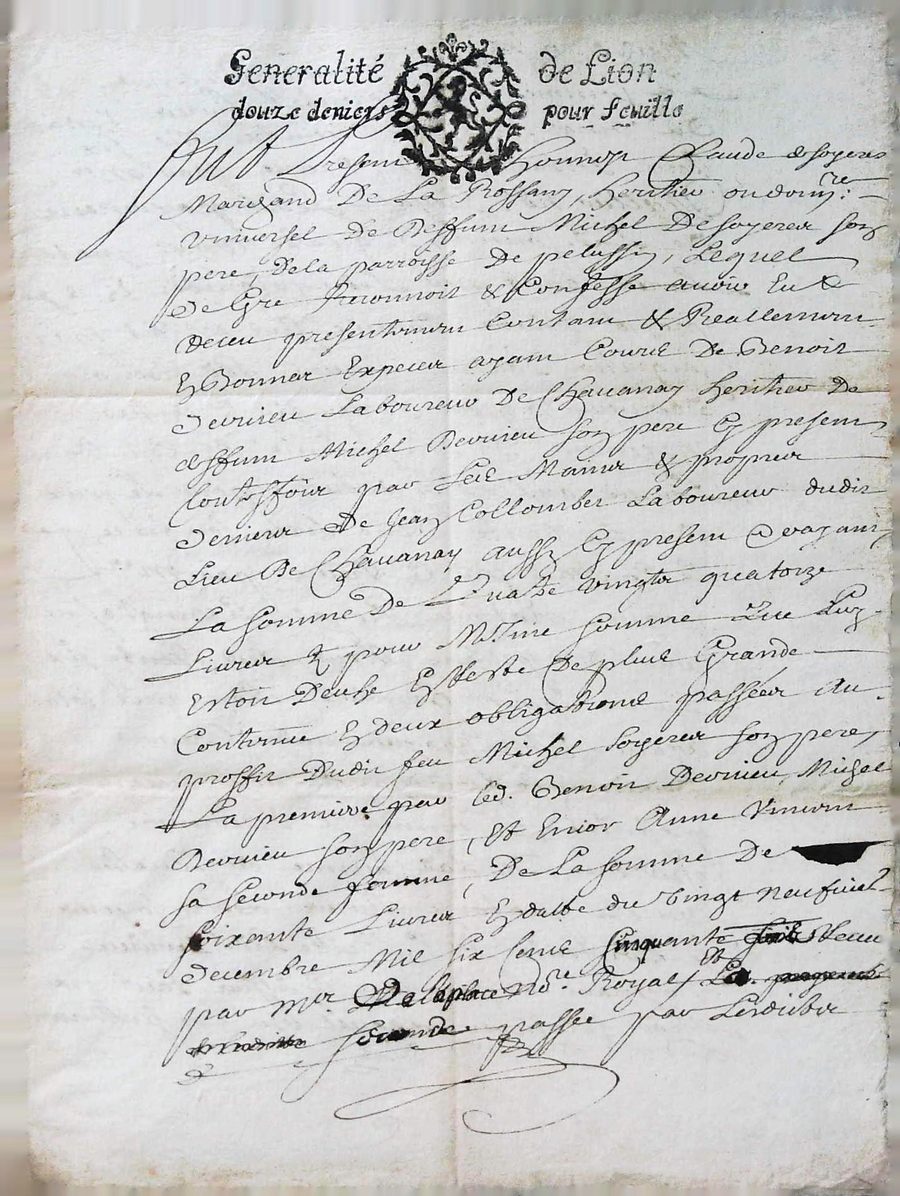 Generalité de Lion
douze deniers pour feuille
fut Present honnor Claude desoyeres
Marchand De La Rossany, heritier
Vniuersel De Deffunt Michel Desoyerer son
pere, dela parroisse De pelussin, Lequel
De Gre & Confesse auoir Eu &
Receu presentement Contant & Reallement
En Bonnes Expeces ayant Cours De Benoit
Devrieu Laboureur De Chauanay heritier De
deffunt Michel Devrieu son pere Cy present
par Les Mains & propres
Deniers De Jean Collomber Laboureur dudit
Lieu De Chauanay aussy Cy present
La somme De Quatre vingts quatorze
Liures & pour somme Luy
Estoit Deuhe Reste De plus Grande
Contenue En deux obligations passées Au
proffit Dudit feu Michel Soyerer son pere,
La premiere par led. Benoit Devrieu, Michel
Devrieu son pere, Et Anne Vincent
sa seconde femme, De La somme De
soixante Liures En datte du Vingt Neufuie
decembre Mil six Cens Cinquante
par Mr. Delaplace No.re Royal, Et La
seconde passée par